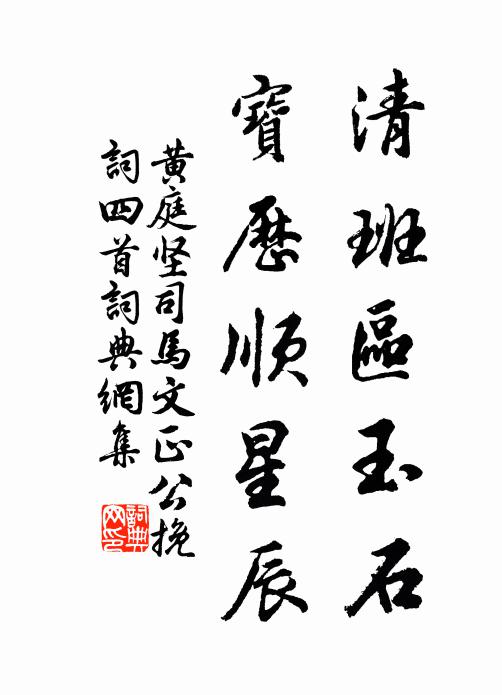 清班區玉石
寶歷順星辰
黄庭坚司馬文正公挽
詞四首詞典網集
詞典网印